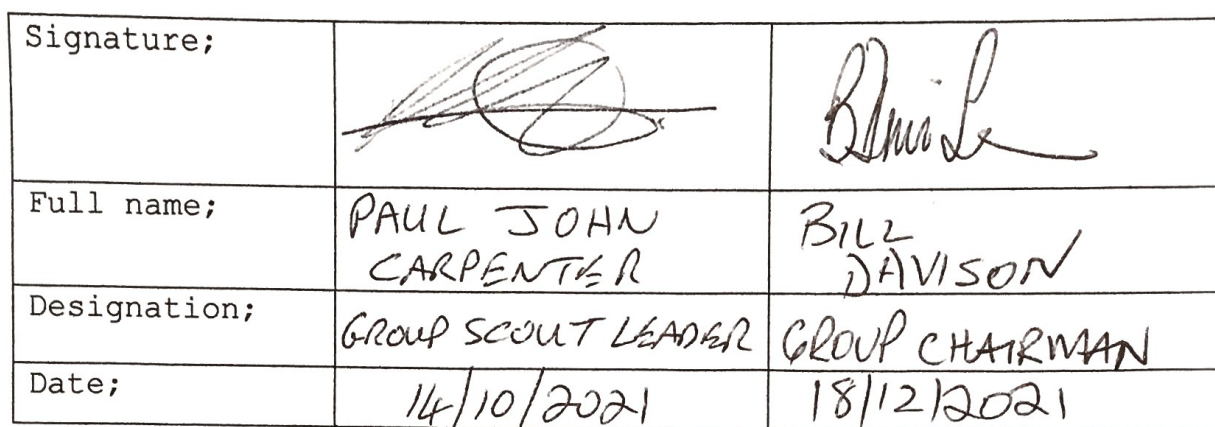 Signature;
Full name; PAUL JOHN BILL
CARPENTER DAVISON
Designation; GROUP SCOUT LEADER GROUP CHAIRMAN
Date; 14/10/2021 18/12/2021